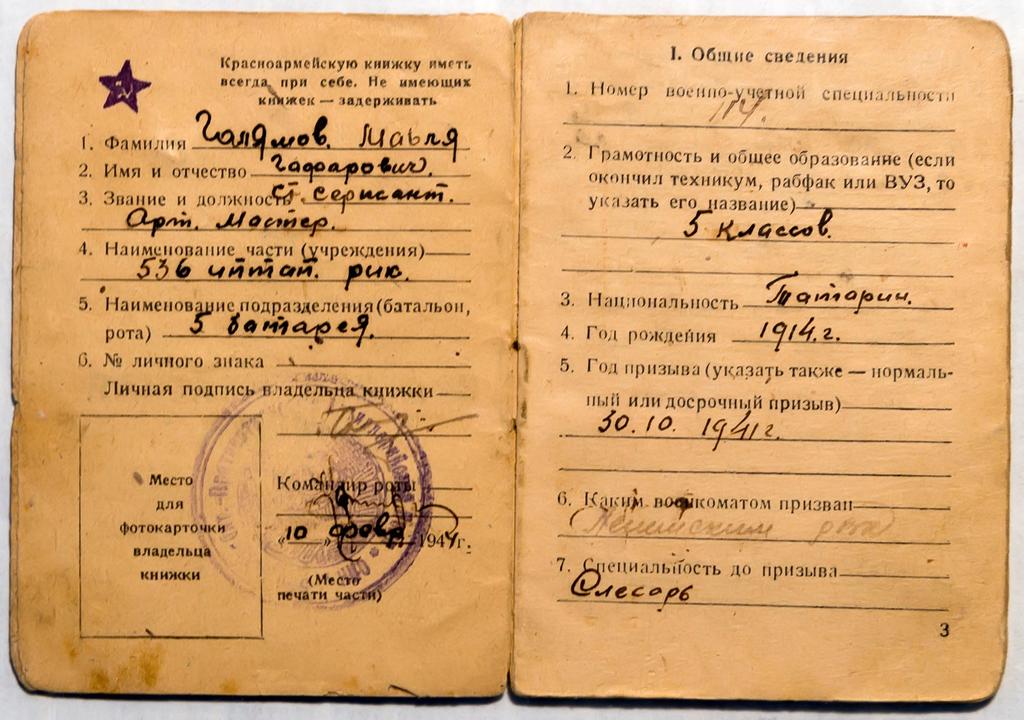 Красноармейскую книжку иметь
всегда при себе. Не имеющих
книжек — задерживать
1. Фамилия Галямов. Мавля
2. Имя и отчество Гафарович.
3. Звание и должность Ст сержант.
Арт. Мастер.
4. Наименование части (учреждения)
536 иптап. ргк.
5. Наименование подразделения (батальон,
рота) 5 батарея.
6. № личного знака
Личная подпись владельца книжки
Место
для
фотокарточки
владельца
книжки
Командир роты
«10» февр 1944г.
(Место
печати части)
I. Общие сведения
1. Номер военно-учетной специальности
2. Грамотность и общее образование (если
окончил техникум, рабфак или ВУЗ, то
указать его название)
5 классов.
3. Национальность Татарин.
4. Год рождения 1914.г.
5. Год призыва (указать также — нормаль-
ный или досрочный призыв)
30.10. 1941г.
6. Каким военкоматом призван
7. Специальность до призыва
Слесарь
3